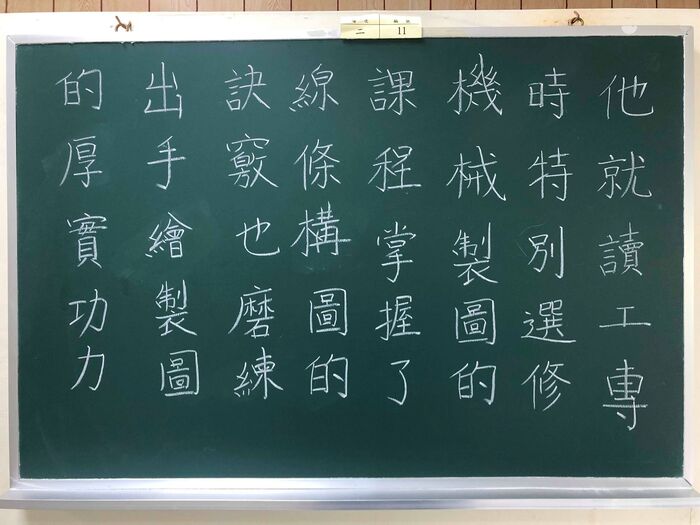 他就讀工專
時特別選修
機械製圖的
課程掌握了
線條構圖的
訣竅也磨練
出手繪製圖
的厚實功力
二
11